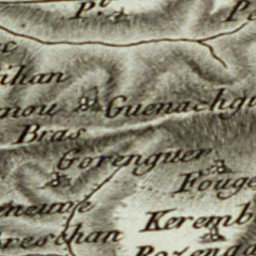 P.
Pe
c
ihan
mou Guenachgu
Bras
Gorenguer
Fouge
eneuve
Keremb
reschan
Rozenga